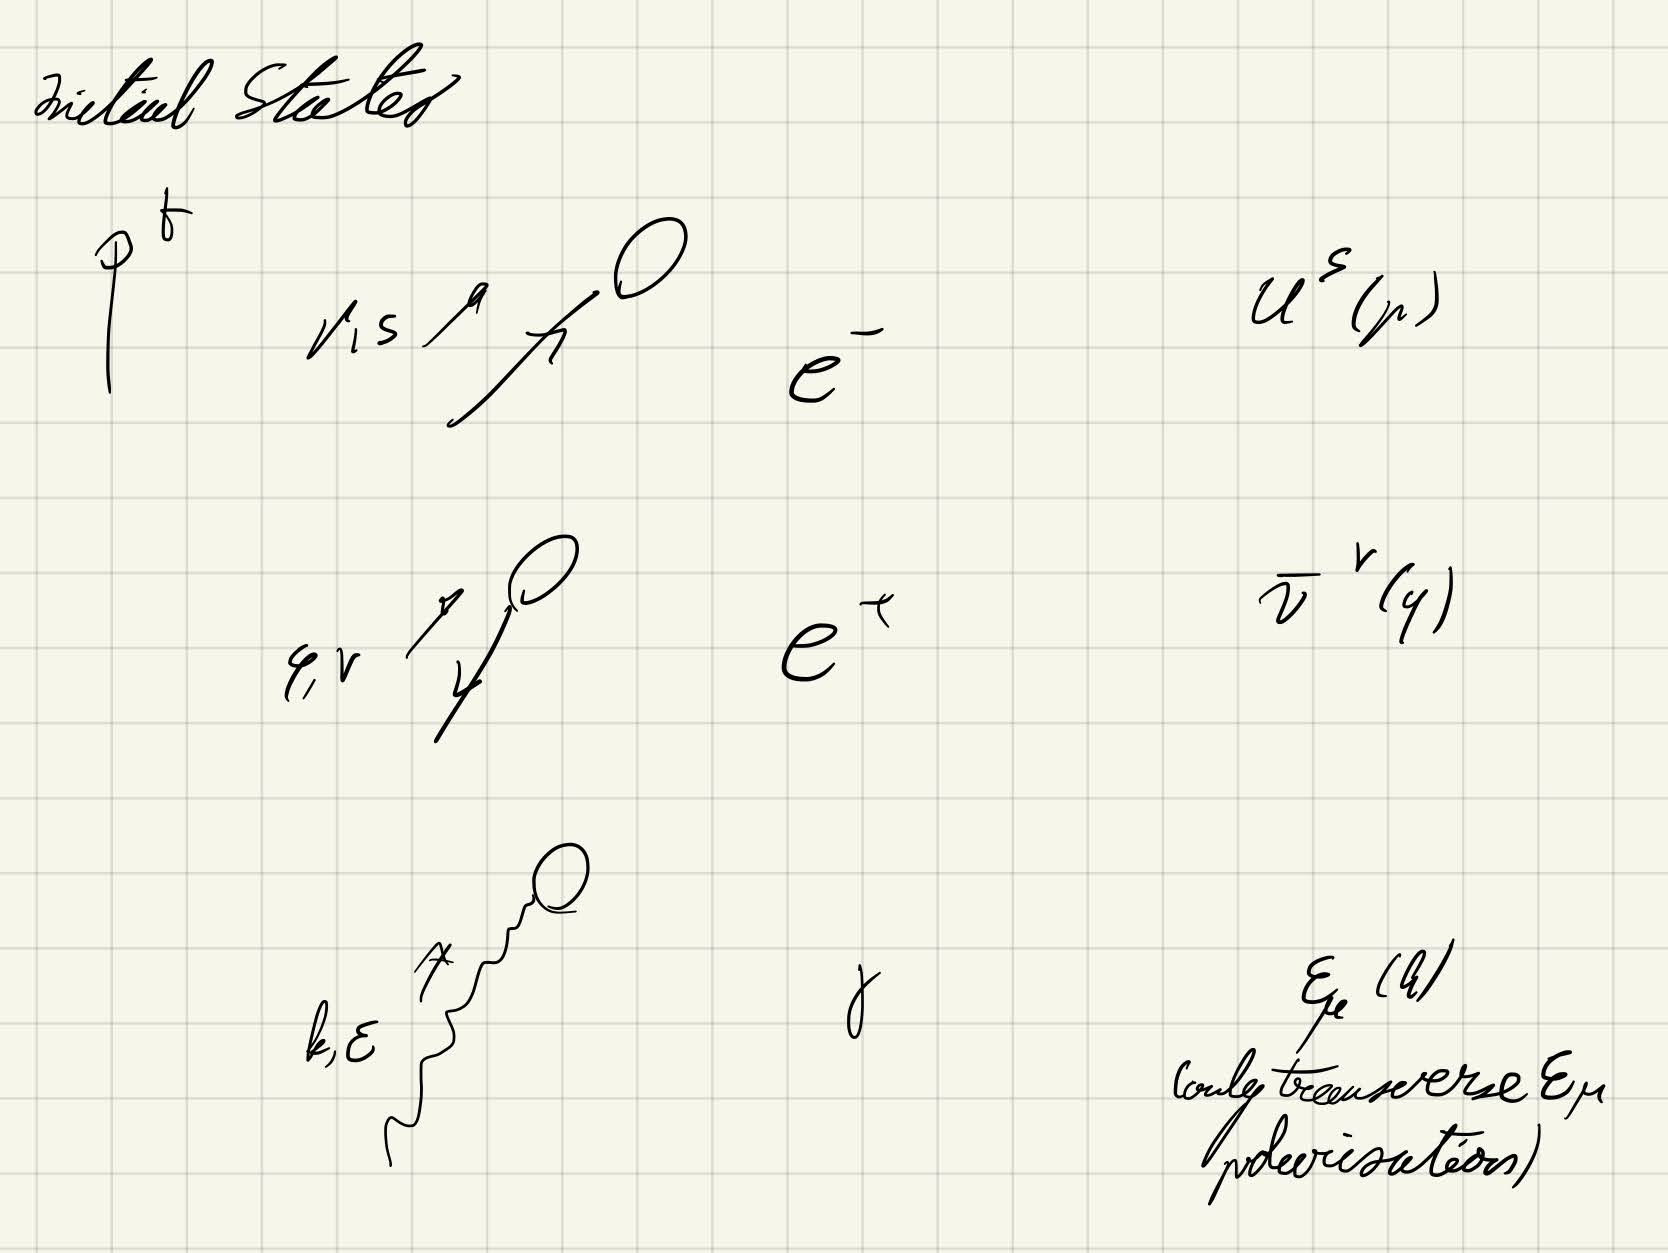 Initial States
t
p, s e⁻ uˢ(p)
q, r e⁺ v̄ʳ(q)
k, ε γ ε_μ(k)
(only transverse ε_μ
polarisations)